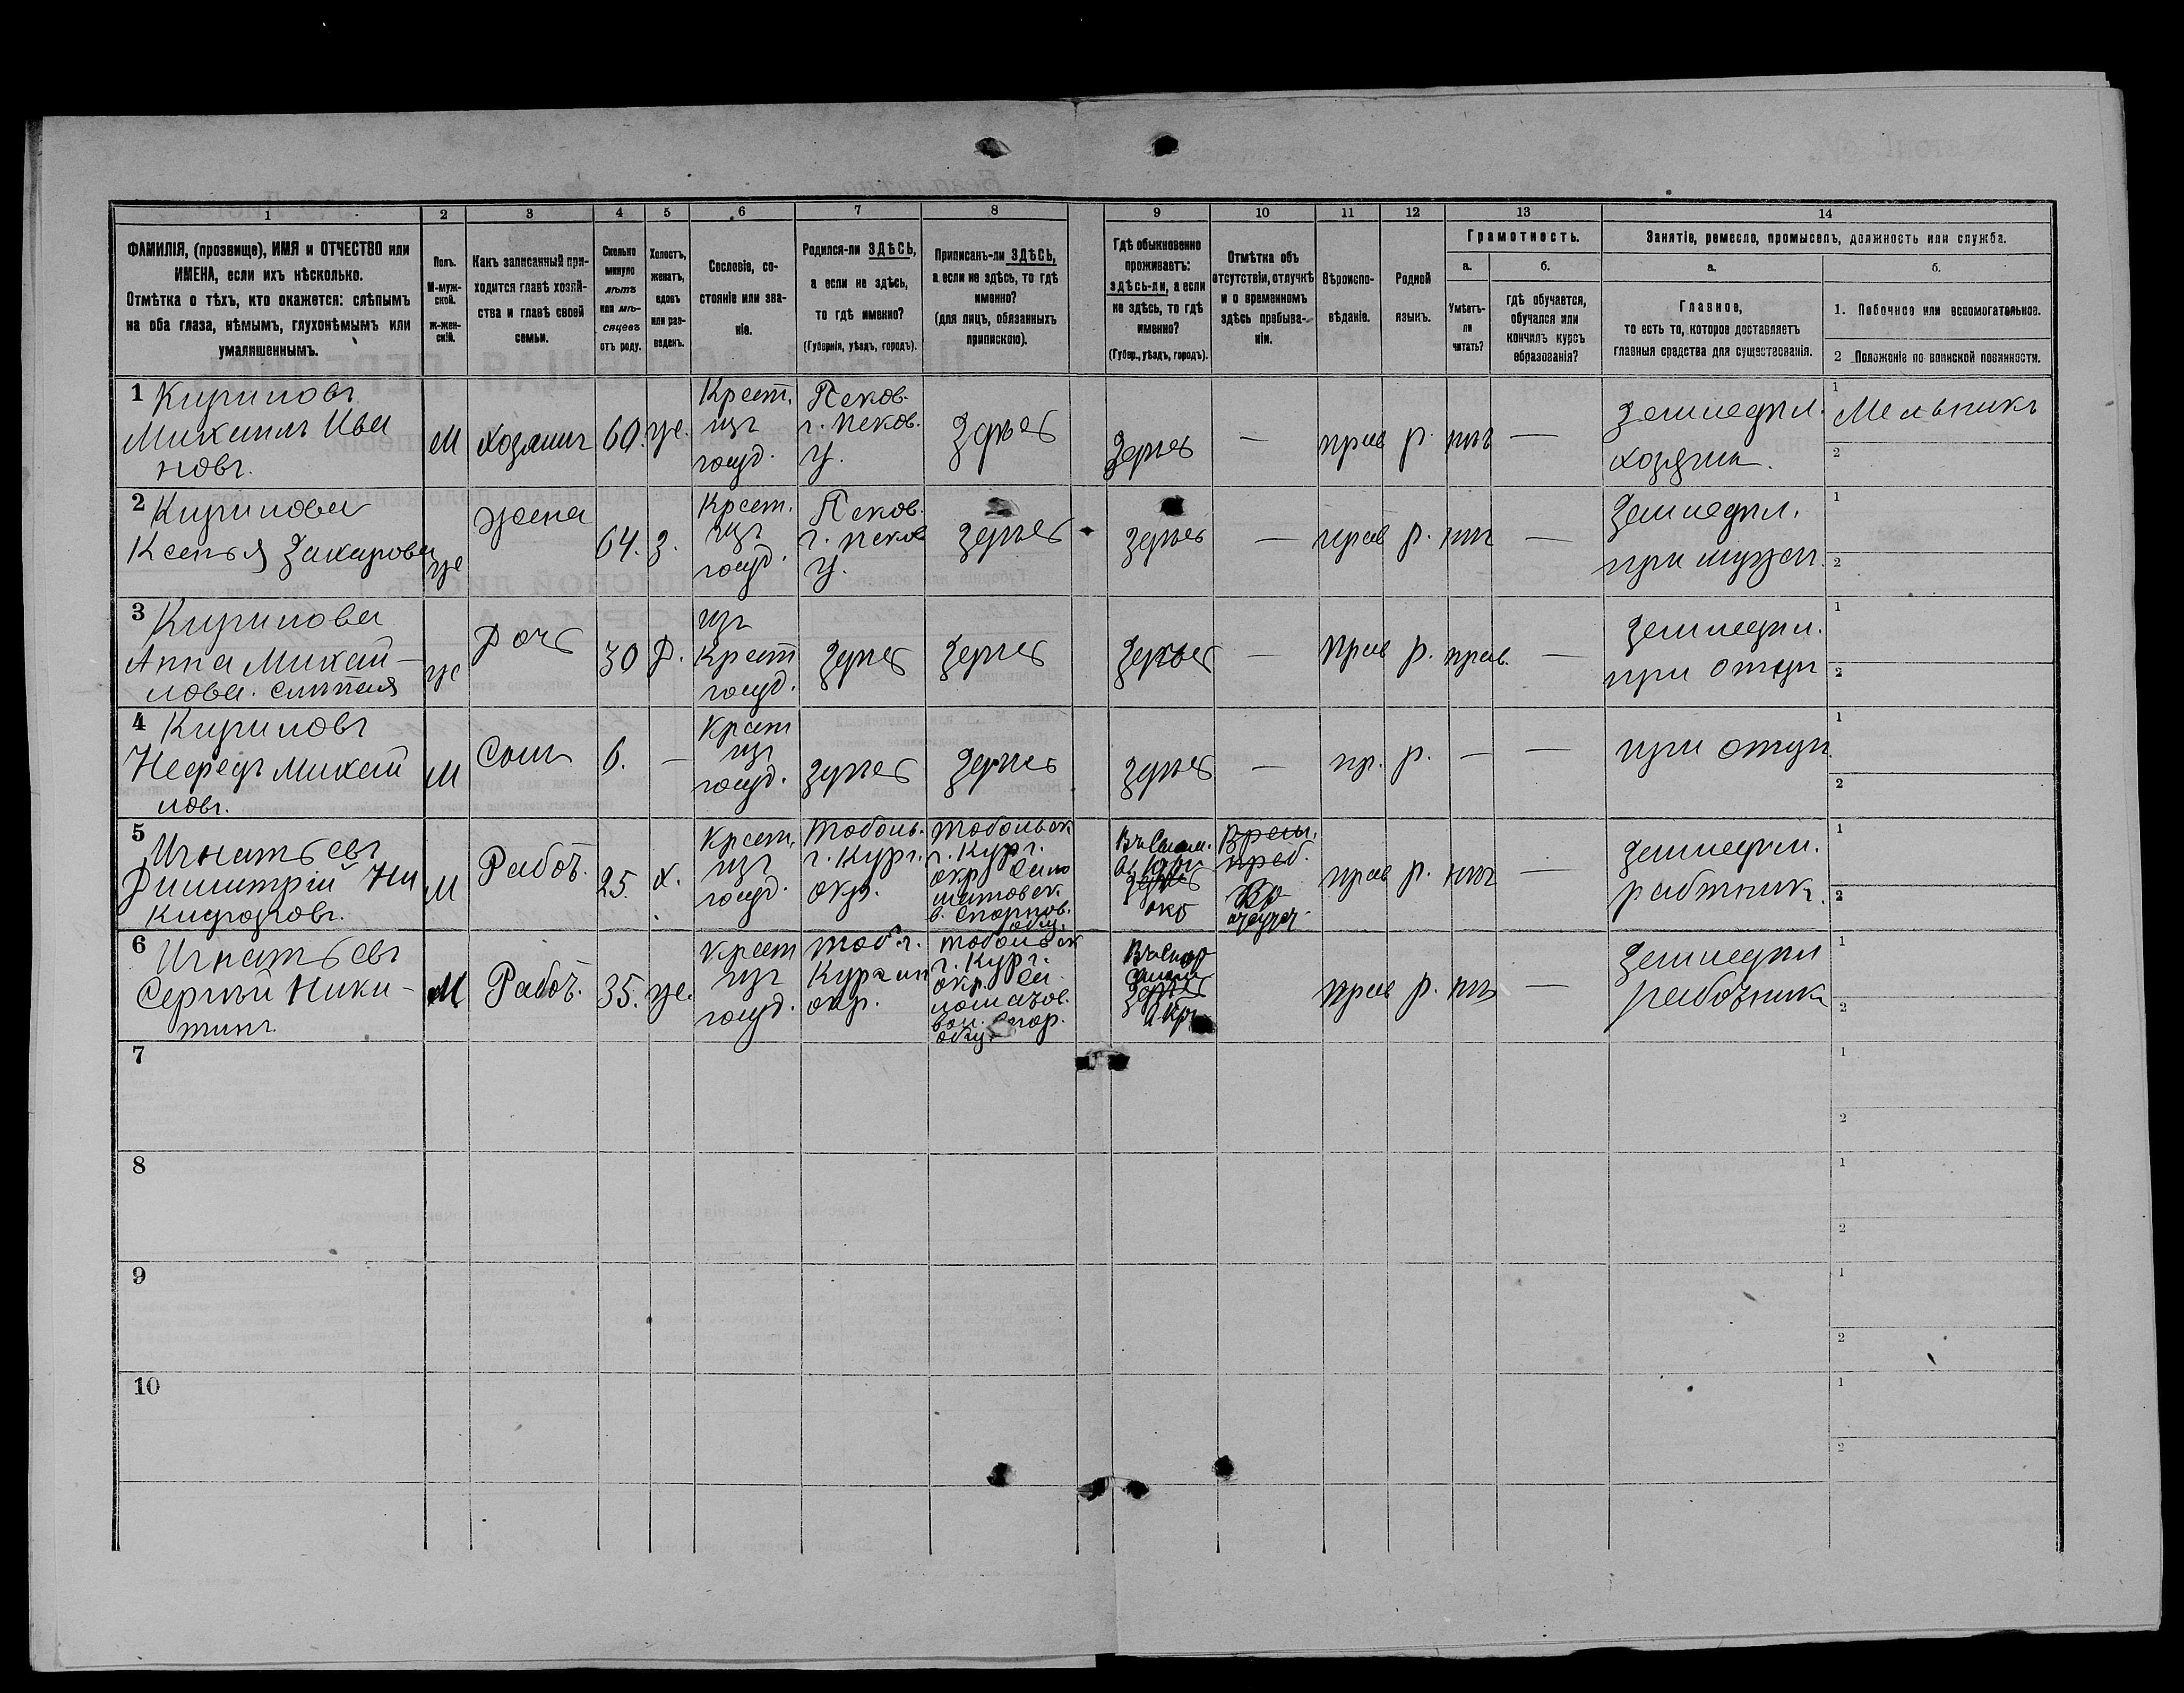 1 2 3 4 5 6 7 8 9 10 11 12 13 14
ФАМИЛІЯ, (прозвище), ИМЯ и ОТЧЕСТВО или
ИМЕНА, если ихъ нѣсколько.
Отмѣтка о тѣхъ, кто окажется: слѣпымъ
на оба глаза, нѣмымъ, глухонѣмымъ или
умалишеннымъ.
Полъ.
М-муж-
ской.
Ж-жен-
скій.
Какъ записанный при-
ходится главѣ хозяй-
ства и главѣ своей
семьи.
Сколько
минуло
лѣтъ
или мѣ-
сяцевъ
отъ роду.
Холостъ,
женатъ,
вдовъ
или раз-
веденъ.
Сословіе, со-
стояніе или зва-
ніе.
Родился-ли ЗДѢСЬ,
а если не здѣсь,
то гдѣ именно?
(Губернія, уѣздъ, городъ).
Приписанъ-ли ЗДѢСЬ,
а если не здѣсь, то гдѣ
именно?
(для лицъ, обязанныхъ
припискою).
Гдѣ обыкновенно
проживаетъ:
здѣсь-ли, а если
не здѣсь, то гдѣ
именно?
(Губер., уѣздъ, городъ).
Отмѣтка объ
отсутствіи, отлучкѣ
и о временномъ
здѣсь пребыва-
ніи.
Вѣроиспо-
вѣданіе.
Родной
языкъ.
Грамотность.
а.
Умѣетъ-
ли
читать?
б.
гдѣ обучается,
обучался или
кончилъ курсъ
образованія?
Занятіе, ремесло, промыселъ, должность или служба.
а.
Главное,
то есть то, которое доставляетъ
главныя средства для существованія.
б.
1. Побочное или вспомогательное.
2 Положеніе по воинской повинности.
1 Кириловъ
Михаилъ Ива
новъ.
М
Хозяинъ
60.
же.
Крест.
изъ
госуд.
Псков.
г. Псков.
у.
Здѣсь
Здѣсь
—
прав
р.
нѣтъ
—
Земледѣл.
хозяин.
1 Мельникъ
2
2 Кирилова
Ксенья Захарова
же
жена
64.
з.
Крест.
изъ
госуд.
Псков.
г. Псков
у.
Здѣсь
Здѣсь
—
прав
р.
нѣтъ
—
Земледѣл.
при мужѣ.
1
2
3 Кирилова
Анна Михай-
лова. слѣпая
же
Дочь
30
Д.
изъ
Крест
госуд.
Здѣсь
Здѣсь
Здѣсь
—
прав
р.
—
Земледѣл.
при отцѣ
1
2
4 Кириловъ
Нефедъ Михай
ловъ.
М
Сынъ
6.
—
Крест
изъ
госуд.
Здѣсь
Здѣсь
Здѣсь
—
пр.
р.
—
—
при отцѣ
1
2
5
Игнатьевъ
Димитрій Ни
М
Рабоч.
25.
х.
Крест.
изъ
госуд.
Тоболь.
г. Кург.
окр.
Тобольск
г. Кург.
окр.
Здѣсь
Врем.
преб.
прав
р.
нѣтъ
—
Земледѣл.
работник.
1
2
6
Игнатьевъ
Сергѣй Ники-
тинъ.
М
Рабоч.
35.
же.
Крест
изъ
госуд.
Тоб. г.
Курган
окр.
Тобольск
г. Кург.
окр.
Здѣсь
прав
р.
нѣтъ
—
Земледѣл
работникъ
1
2
7
1
2
8
1
2
9
1
2
10
1
2